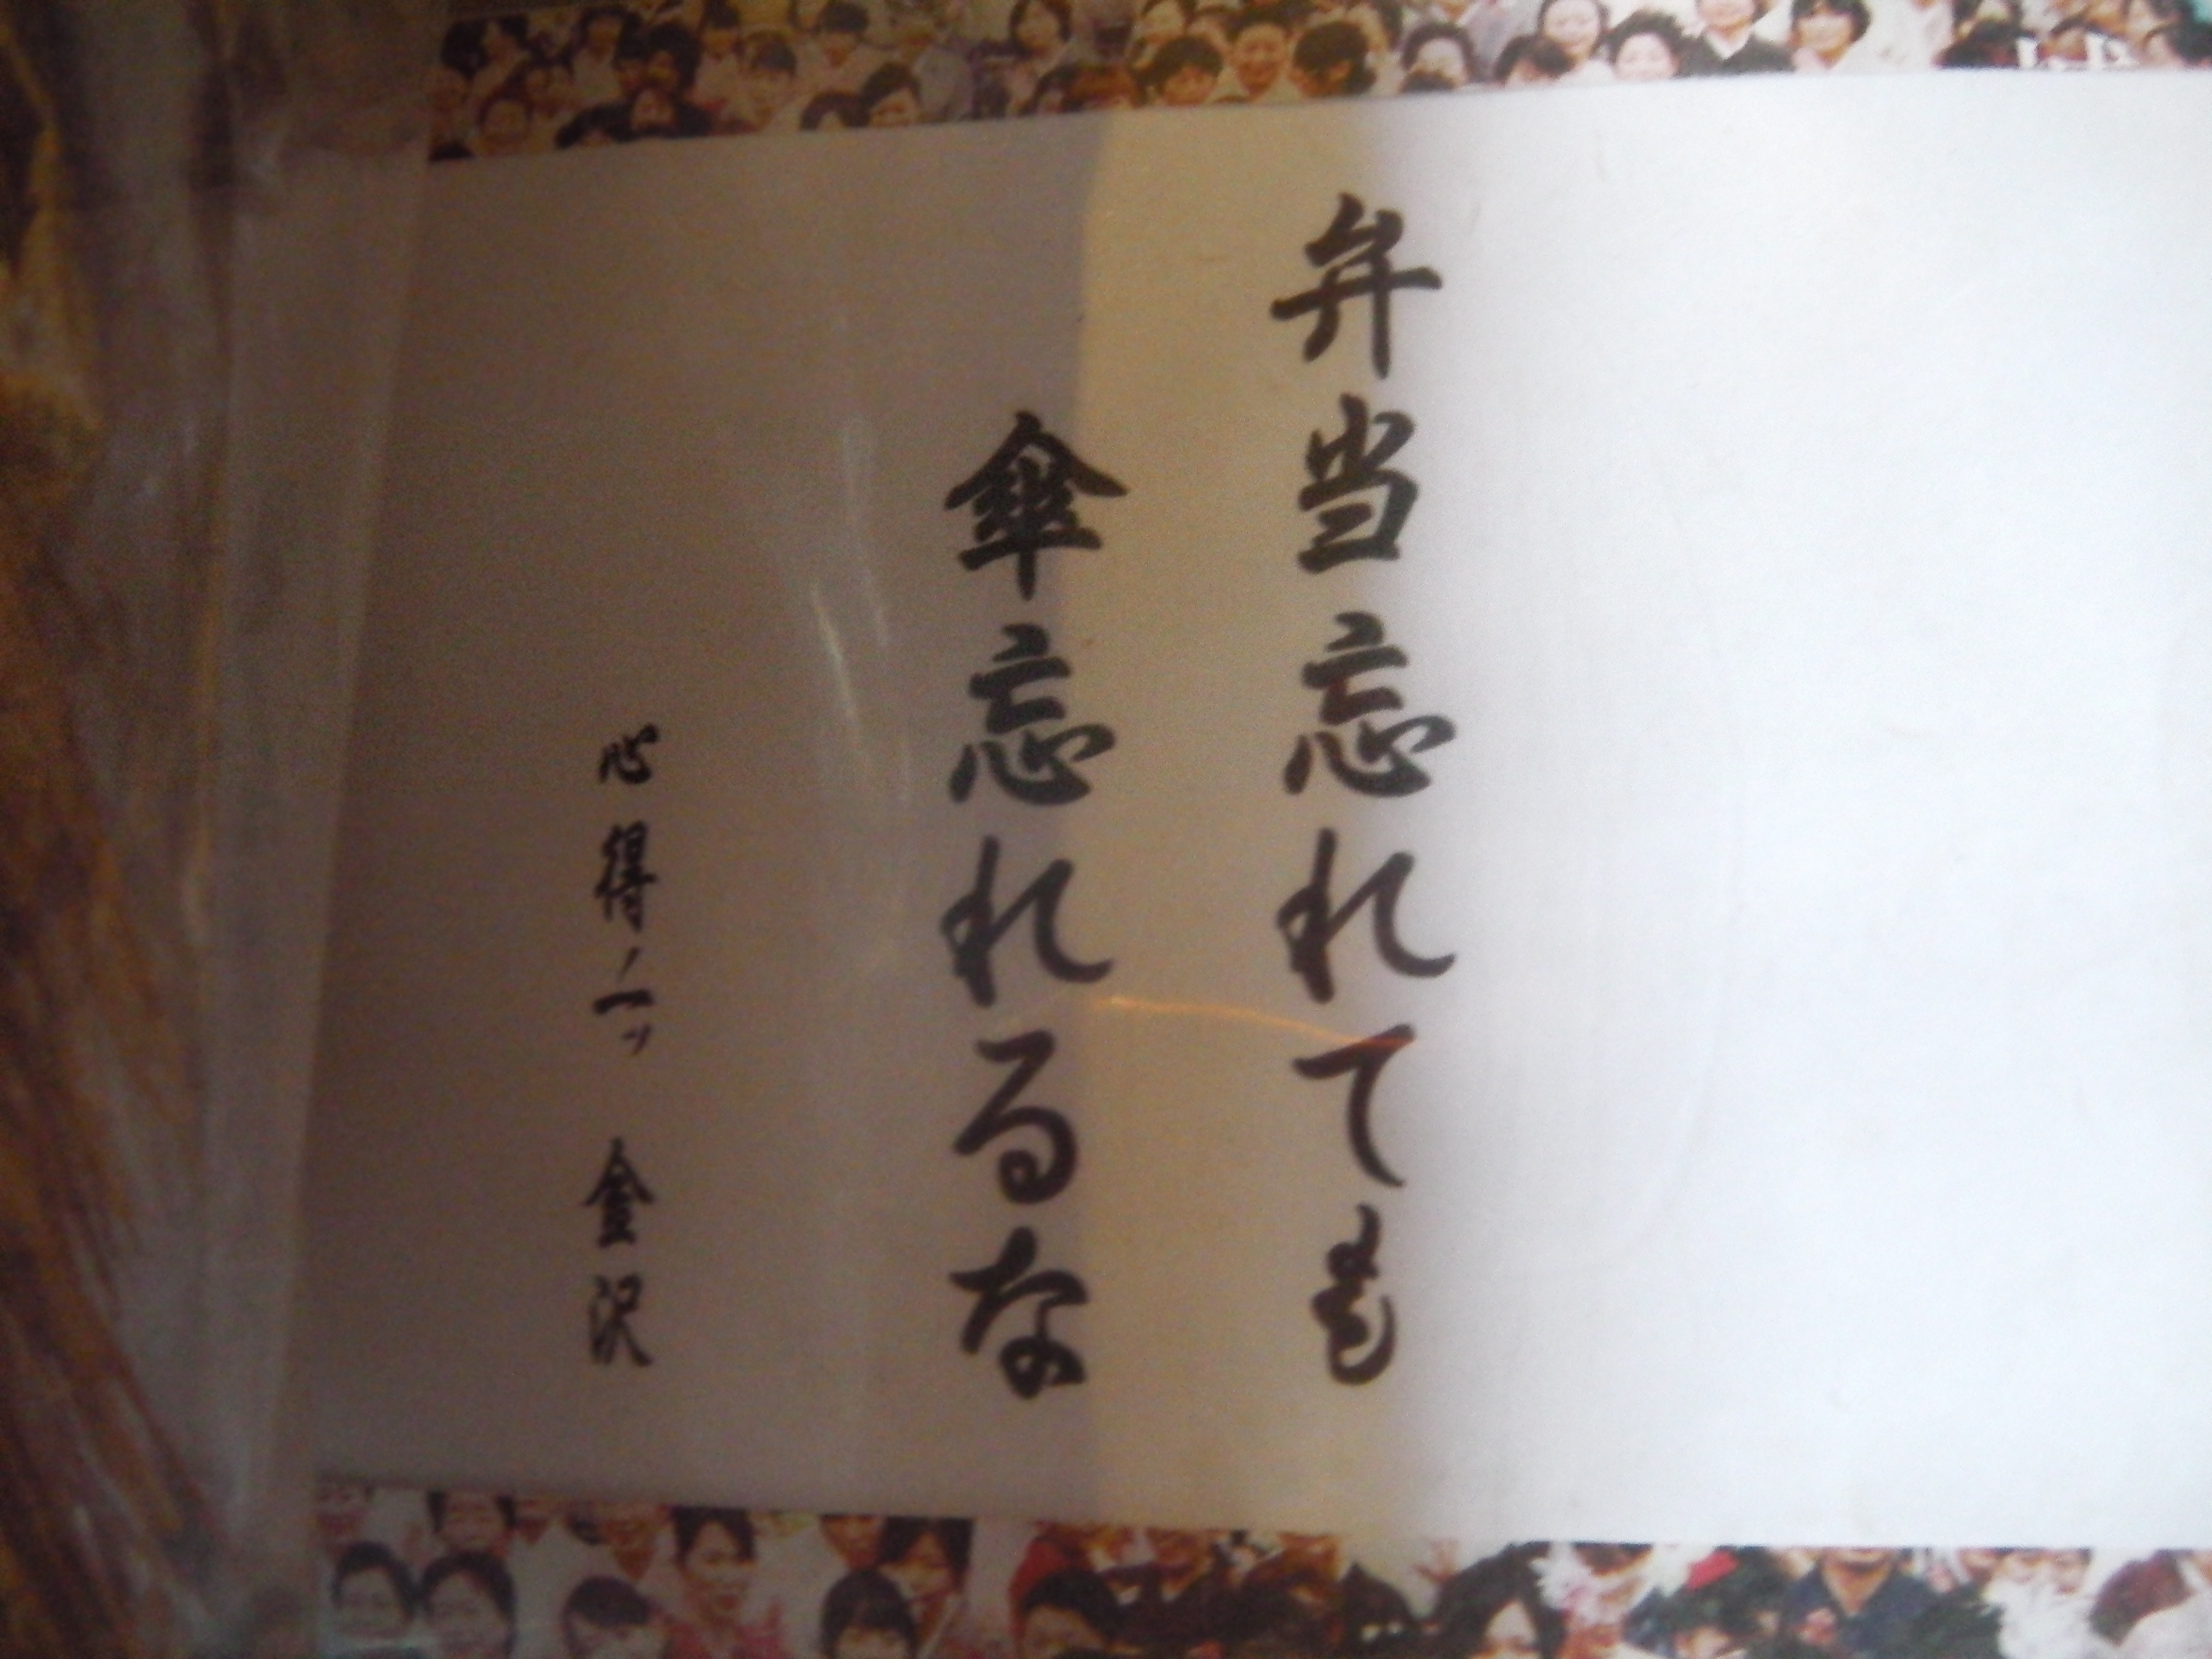 弁当忘れても
傘忘れるな
心得ノ一ツ 金沢